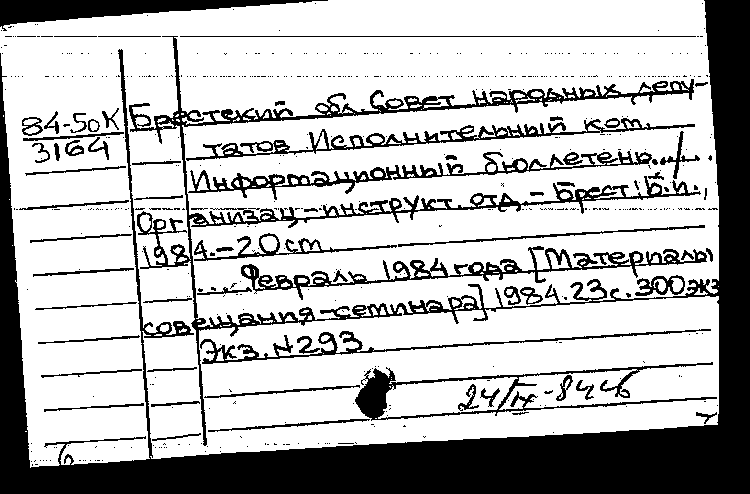 84-5оК
3164
Брестский обл. Совет народных депу-
татов Исполнительный ком.
Информационный бюллетень.../...
Организац.-инструкт. отд. - Брест: Б.и.,
1984.-20 cm.
... Февраль 1984 года [Материалы
совещания-семинара]. 1984. 23 с. 300 экз
Экз. N 293.
24/IX-84
6